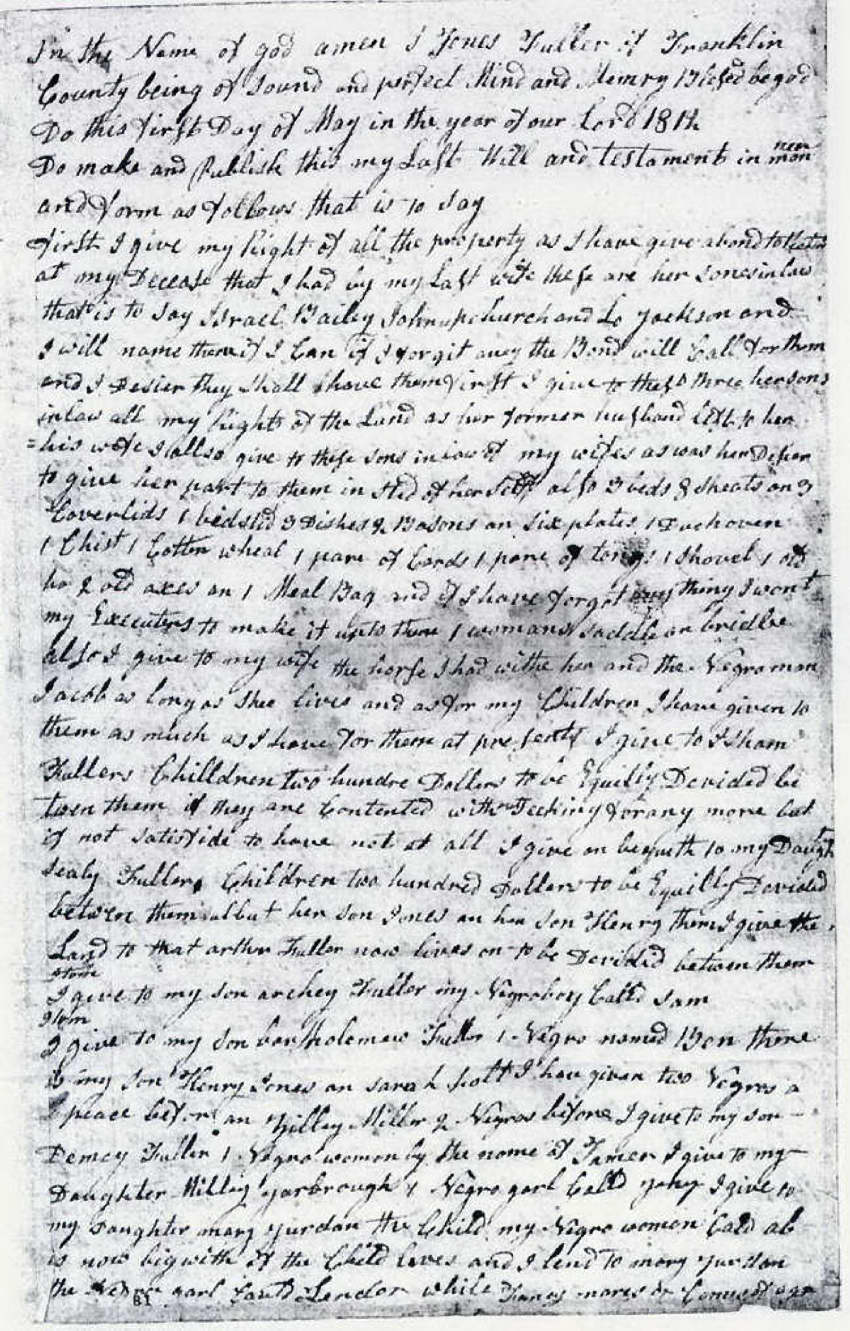 In the Name of god amen I Jones Fuller of Franklin
County being of Sound and perfect Mind and Memry Blesed be god
Do this first Day of May in the year of our Lord 181
Do make and Publish this my Last Will and testament in man
ner
and form as follows that is to say
first I give my Right of all the property as I have give a bond to
at my Decease that I had by my Last wife these are her sonesinlaw
that is to say Israel Bailey John upchurch and Jackson and
I will name them if I Can if I forgit aney the Bond will Call for them
and I Desier they shall have them first I give to these three her sons
in law all my Rights of the Land as her former husband left to her
his wife I allso give to these sons in law of my wifes as was her Desier
to give her part to them in sted of her self also 3 beds 8 sheats an 3
Coverlids 1 bedstid 3 Dishes 2 Basons an six plates 1 Duchoven
1 Chist 1 Cotten wheal 1 pare of Cards 1 pare of tongs 1 shovel 1 old
ho 2 old axes an 1 Meal Bag and if I have forgot any thing I wont
my Executers to make it unto them 1 womans saddle an bridle
also I give to my wife the horse I had withe her and the Negro man
Jacob as long as shee lives and as for my Children I have given to
them as much as I have for them at present I give to Isham
Fullers Chilldren two hundre Dollers to be Equilly Devided be
twen them if they are Contented with Seeking for any more but
if not satisfide to have not at all I give an bequeth to my Daugh
sealy Fullers Children two hundred Dollers to be Equilly Devided
between them al but her son Jones an her son Henry them I give the
Land to that arthur Fuller now lives on to be Devided between them
Item
I give to my son archey Fuller my Negroboy Calld Sam
Item
I give to my son bartholomew Fuller 1 Negro named Ben there
is my son Henry Jones an sarah I have given two Negros a
peace before an Milley Miller 2 Negros before I give to my son
Demcy Fuller 1 Negro woman by the name of Tamer I give to my
Daughter Milley yarbrough 1 Negro garl Calld I give to
my Daughter mary yurdan the Child my Negro woman Cald
is now big with if the Child lives and I lend to mary yurdan
the Negro garl Cauld while
81